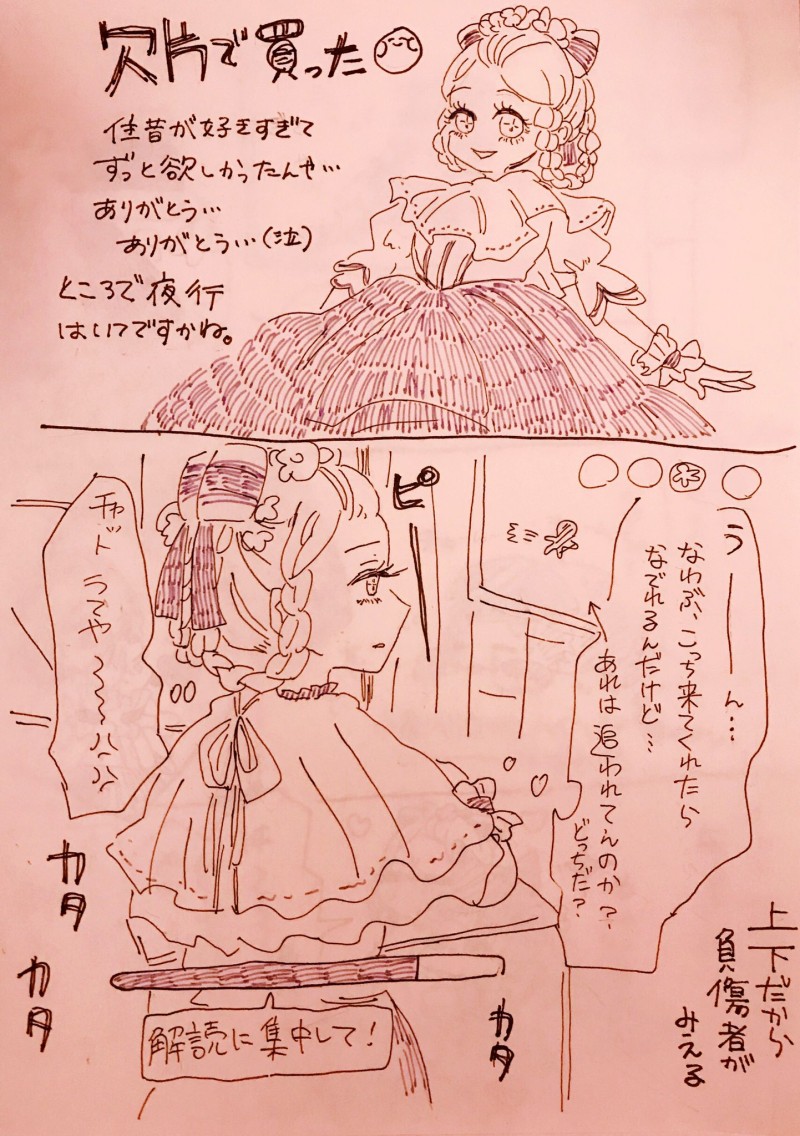 欠片で買った
佳昔が好きすぎて
ずっと欲しかったんや…
ありがとう…
ありがとう…(泣)
ところで夜行
はいつですかね。
ピ
うーーん…
なわぶ、こっち来てくれたら
なでれるんだけど…
あれは追われてんのか?
どっちだ?
チャット うてや〜〜〜ハハ
カタ
カタ
カタ
解読に集中して!
上下だから
負傷者が
みえる